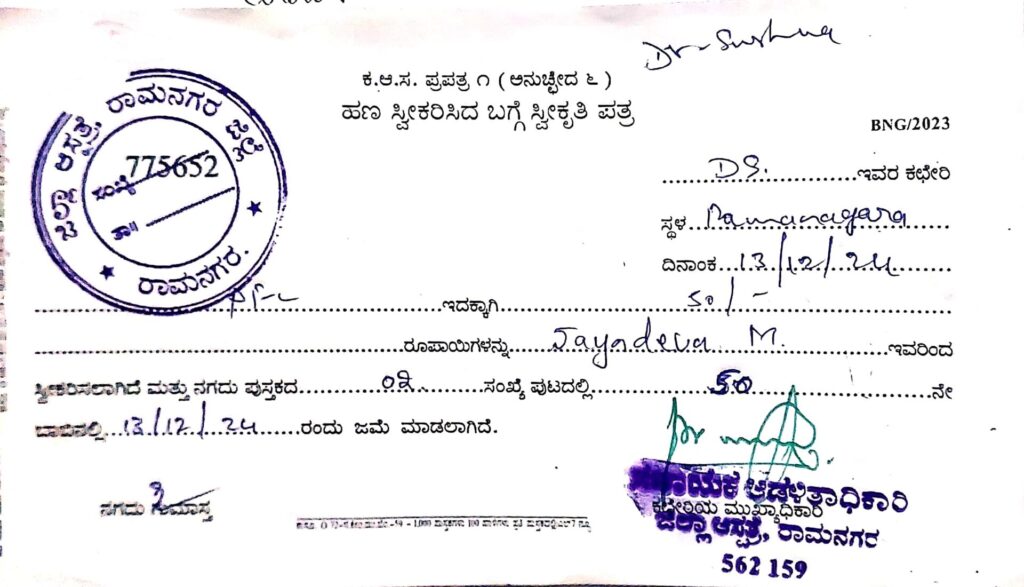 Dr Sushma
ಕ.ಆ.ಸ. ಪ್ರಪತ್ರ ೧ ( ಅನುಚ್ಛೇದ ೬ )
ಹಣ ಸ್ವೀಕರಿಸಿದ ಬಗ್ಗೆ ಸ್ವೀಕೃತಿ ಪತ್ರ
BNG/2023
ಜಿಲ್ಲಾ ಆಸ್ಪತ್ರೆ, ರಾಮನಗರ ಜಿಲ್ಲೆ
775652
ಸಂಖ್ಯೆ
ತಾ॥
ರಾಮನಗರ.
D S. ಇವರ ಕಛೇರಿ
ಸ್ಥಳ Ramanagara
ದಿನಾಂಕ 13/12/24
ಇದಕ್ಕಾಗಿ 50/-
ರೂಪಾಯಿಗಳನ್ನು Jayadeva M. ಇವರಿಂದ
ಸ್ವೀಕರಿಸಲಾಗಿದೆ ಮತ್ತು ನಗದು ಪುಸ್ತಕದ 02 ಸಂಖ್ಯೆ ಪುಟದಲ್ಲಿ 50 ನೇ
ಬಾಬಿನಲ್ಲಿ 13/12/24 ರಂದು ಜಮೆ ಮಾಡಲಾಗಿದೆ.
ನಗದು ಗುಮಾಸ್ತ
ಸಹಾಯಕ ಆಡಳಿತಾಧಿಕಾರಿ
ಕಛೇರಿಯ ಮುಖ್ಯಾಧಿಕಾರಿ
ಜಿಲ್ಲಾ ಆಸ್ಪತ್ರೆ, ರಾಮನಗರ
562 159